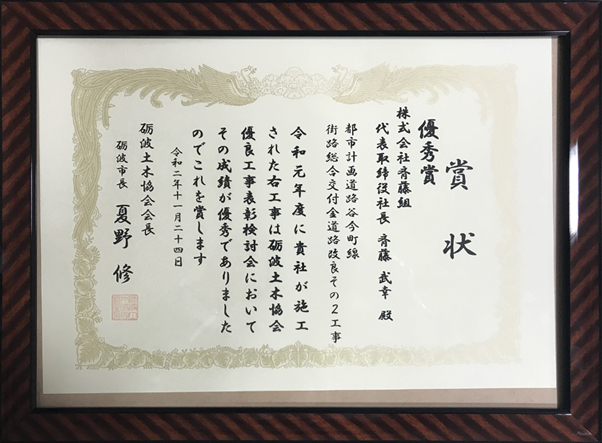 賞状
優秀賞
株式会社齊藤組
代表取締役社長 齊藤 武幸 殿
都市計画道路谷今町線
街路総合交付金道路改良その2工事
令和元年度に貴社が施工
された右工事は砺波土木協会
優良工事表彰検討会において
その成績が優秀でありました
のでこれを賞します
令和二年十一月二十四日
砺波土木協会会長
砺波市長 夏野 修